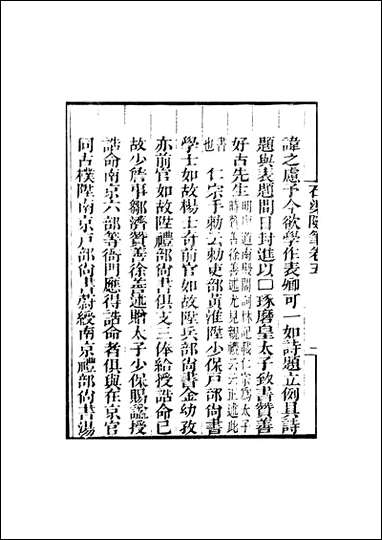 石渠隨筆卷五
諱之處予今欲學作表卿可一如詩題立例具詩
題與表題間日封進以口琢磨皇太子致書贊善
好古先生明史道南殿閣詞林記載仁宗爲太子
時贊善徐善述尤見親禮云云正述此
書也 仁宗手勅云勅吏部黃淮陞少保戶部尙書
學士如故楊士奇前官如故陞兵部尙書金幼孜
亦前官如故陞禮部尙書俱支三体給授誥命已
故少詹事鄒濟贊善徐善述贈太子少保賜謚授
誥命南京六部等衙門應得誥命者俱與在京官
同古樸陞南京戶部尙書蔚綬南京禮部尙書湯